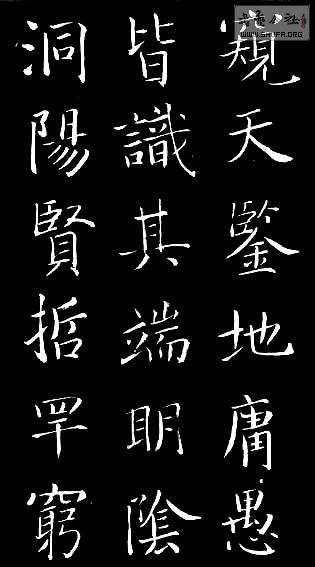 窺天鑒地庸愚
皆識其端明陰
洞陽賢哲罕窮
WWW.SHUFA.ORG